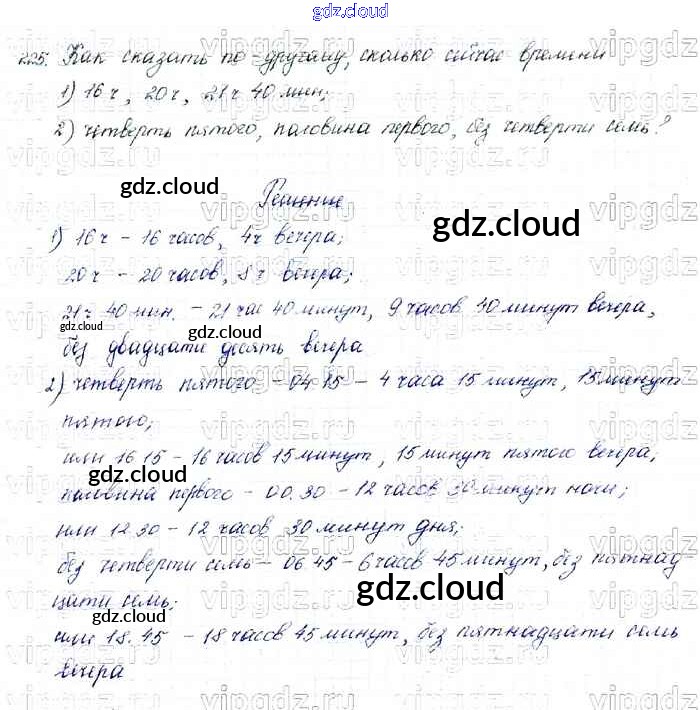 gdz.cloud
225. Как сказать по-другому, сколько сейчас времени
1) 16 ч, 20 ч, 21 ч 40 мин;
2) четверть пятого, половина первого, без четверти семь?
gdz.cloud
Решение
gdz.cloud
1) 16 ч – 16 часов, 4 ч вечера;
20 ч – 20 часов, 8 ч вечера;
21 ч 40 мин. – 21 час 40 минут, 9 часов 40 минут вечера,
gdz.cloud
gdz.cloud
без двадцати десять вечера
2) четверть пятого – 04 15 – 4 часа 15 минут, 15 минут
пятого;
или 16 15 – 16 часов 15 минут, 15 минут пятого вечера;
gdz.cloud
половина первого – 00.30 – 12 часов 30 минут ночи;
или 12 30 – 12 часов 30 минут дня;
без четверти семь – 06 45 – 6 часов 45 минут, без пятнад
gdz.cloud
цати семь;
gdz.cloud
или 18.45 – 18 часов 45 минут, без пятнадцати семь
вечера